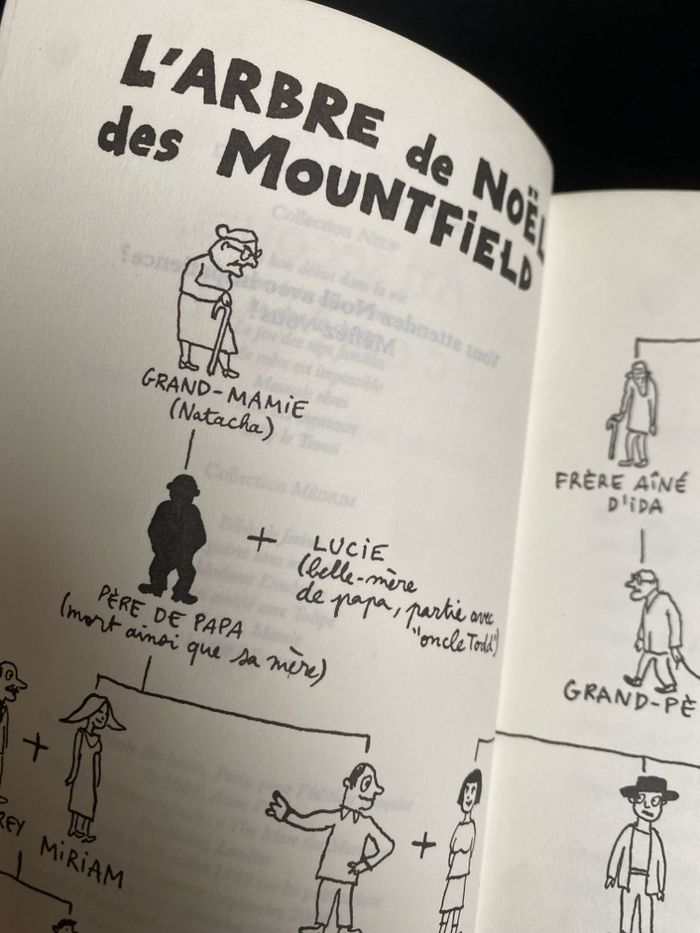 L'ARBRE de NOËL
des MOUNTFIELD
GRAND-MAMIE
(Natacha)
PÈRE DE PAPA
(mort ainsi que sa mère)
+ LUCIE
(belle-mère
de papa, partie avec
"oncle Todd")
+
MIRIAM
+
FRÈRE AÎNÉ
D'IDA